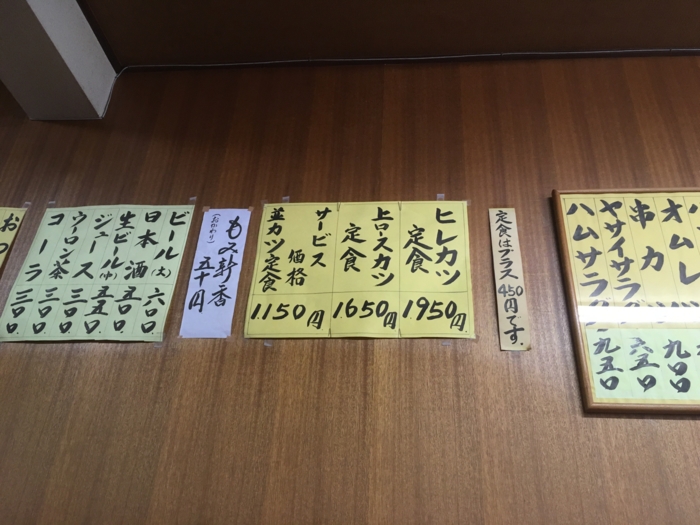 オムレツ 九〇〇
串カツ 六五〇
ヤサイサラダ
ハムサラダ 九五〇
定食はプラス450円です.
ヒレカツ
定食
1950円
上ロースカツ
定食
1650円
サービス価格
並カツ定食
1150円
もみ新香
(おかわり)
五十円
ビール(大) 六〇〇
日本酒 五〇〇
生ビール(中) 五五〇
ジュース 三〇〇
ウーロン茶 三〇〇
コーラ 三〇〇
おつ